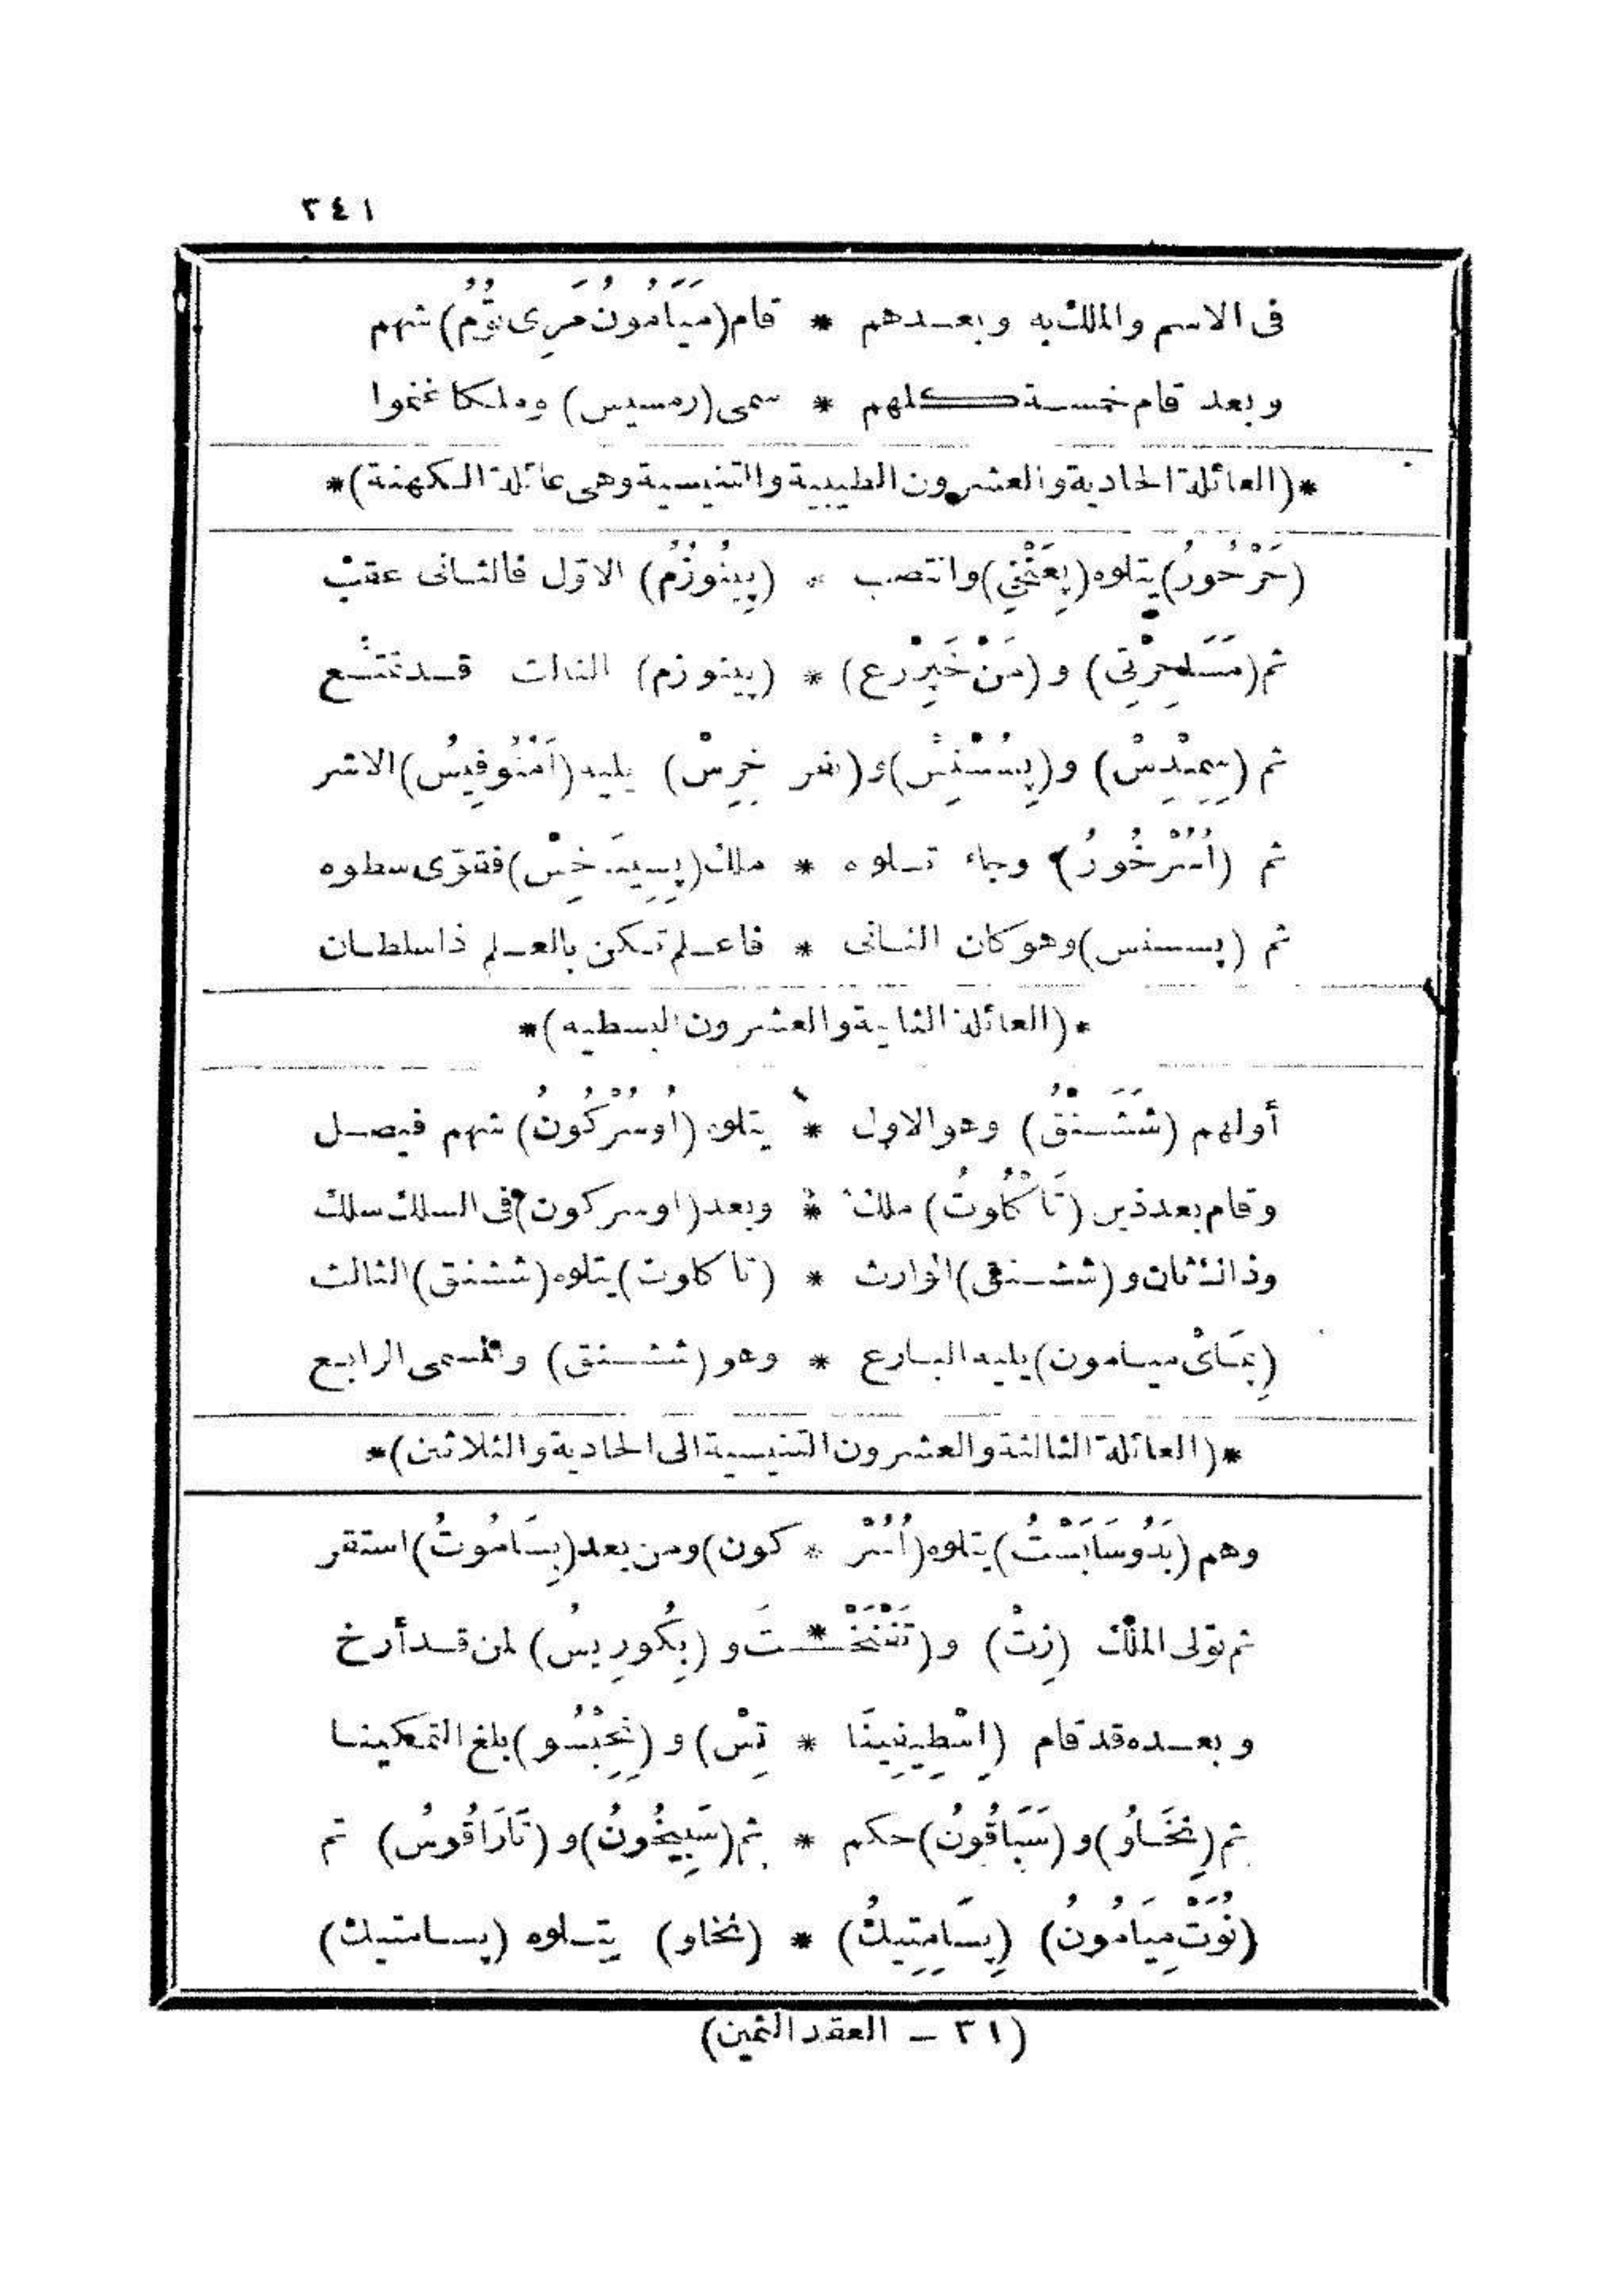 ٢٤١
فى الاسم والملك به وبعدهم * قام (مَيَامُونُ مَرِى تُوُمُ) شهم
وبعد قام خمسة كلهم * سمى (رمسيس) وملكا غنموا
*(العائلة الحادية والعشرون الطيبية والتنيسية وهى عائلة الكهنة)*
(حَرْحُورُ) يتلوه (پِعَنْخِى) وانتصب * (پِينُوزُمُ) الاوّل فالثانى عقب
ثم (مَسَاحِرْتِى) و (مَنْ خَپِرْرع) * (پينوزم) الثالث قد تمتع
ثم (سِمِنْدِسْ) و (پِسُسْنِسْ) و (نفر خِرِسْ) يليه (اَمْنُوفِيسُ) الاشر
ثم (اُسُرْخُورُ) وجاء تلوه * ملك (پِسِينَخِسْ) فقوّى سطوه
ثم (پسسنس) وهو كان الثانى * فاعلم تكن بالعلم ذا سلطان
*(العائلة الثانية والعشرون البسطيه)*
أولهم (شَشَنْقُ) وهو الاول * يتلوه (اُوسُرْكُونُ) شهم فيصل
وقام بعد ذين (تَاكُلُوتُ) ملك * وبعد (اوسركون) فى السلك سلك
وذاك ثان و (ششنق) الوارث * (تا كلوت) يتلوه (ششنق) الثالث
(پِمَاىْ ميامون) يليه البارع * وهو (ششنق) والمسمى الرابع
*(العائلة الثالثة والعشرون التنيسية الى الحادية والثلاثين)*
وهم (بَدُوسَابَسْتُ) يتلوه (اُسُرْ * كون) ومن بعد (پِسَامُوتُ) استقر
ثم تولى الملك (زِتْ) و (تَفْنَخْـ * ـتَ و (بِكُورِيسُ) لمن قد أرخ
وبعده قد قام (اِسْطِيفِينَا * تِسْ) و (نِخِبْسُو) بلغ التمكينا
ثم (نِخَاوُ) و (سَبَاقُونُ) حكم * ثم (سَبِيخُونُ) و (تَارَاقُوسُ) تم
(نُوَتْ مِيَامُونُ) (پِسَامِتِيكُ) * (نخاو) يتلوه (پسامتيك)
(٣١ - العقد الثمين)